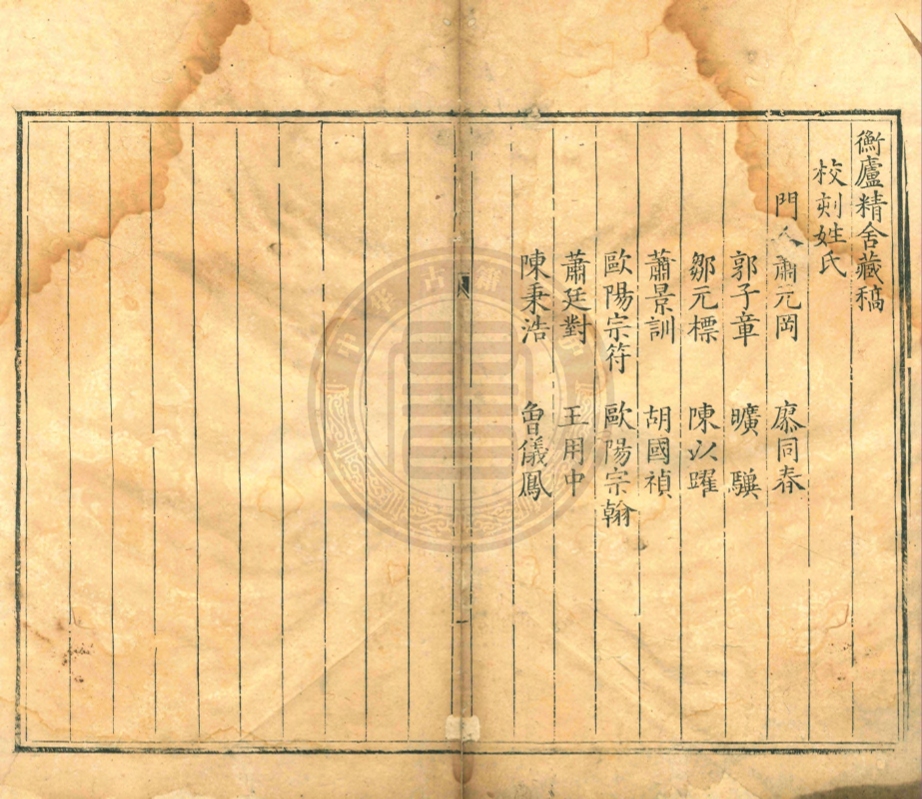 衡廬精舍藏稿
校刻姓氏
門人蕭元岡 廖同春
郭子章 曠驥
鄒元標 陳以躍
蕭景訓 胡國禎
歐陽宗符 歐陽宗翰
蕭廷對 王用中
陳秉浩 魯儀鳳
一